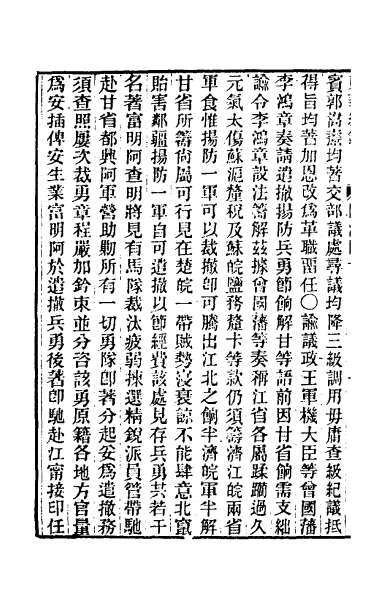 賓郭嵩燾均著交部議處尋議均降三級調用毋庸查級紀議抵
得旨均著加恩改爲革職畱任〇諭議政王軍機大臣等曾國藩
李鴻章奏請遣撤揚防兵勇節餉解甘等語前因甘省餉需支絀
諭令李鴻章設法籌解茲據曾國藩等奏稱江省各屬蹂躪過久
元氣太傷蘇滬釐稅及蘇皖鹽務釐卡等款仍須籌濟江皖兩省
軍食惟揚防一軍可以裁撤卽可騰出江北之餉半濟皖軍半解
甘省所籌尙屬可行見在楚皖一帶賊勢寖衰諒不能肆意北竄
貽害鄰疆揚防一軍自可遣撤以節經費該處見存兵勇共若干
名著富明阿查明將見有馬隊裁汰疲弱揀選精銳派員管帶馳
赴甘省都興阿軍營助勦所有一切勇隊卽著分起妥爲遣撤務
須查照屢次裁勇章程嚴加鈐束並分咨該勇原籍各地方官量
爲安插俾安生業富明阿於遣撤兵勇後著卽馳赴江甯接印任